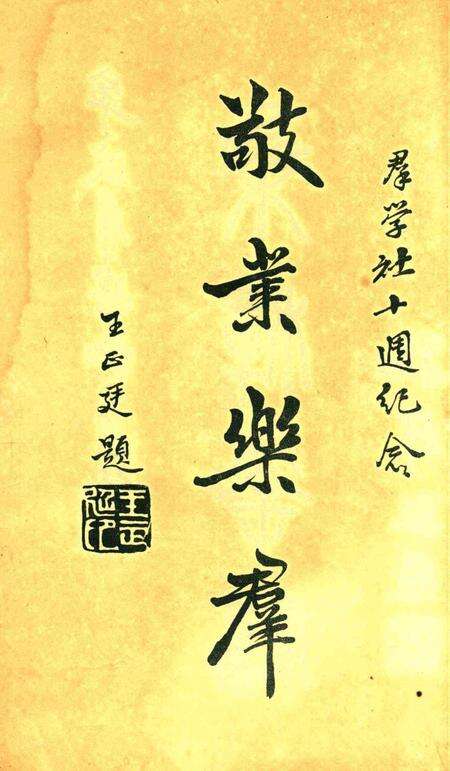 羣学社十週紀念
敬業樂羣
王正廷題
王正廷印